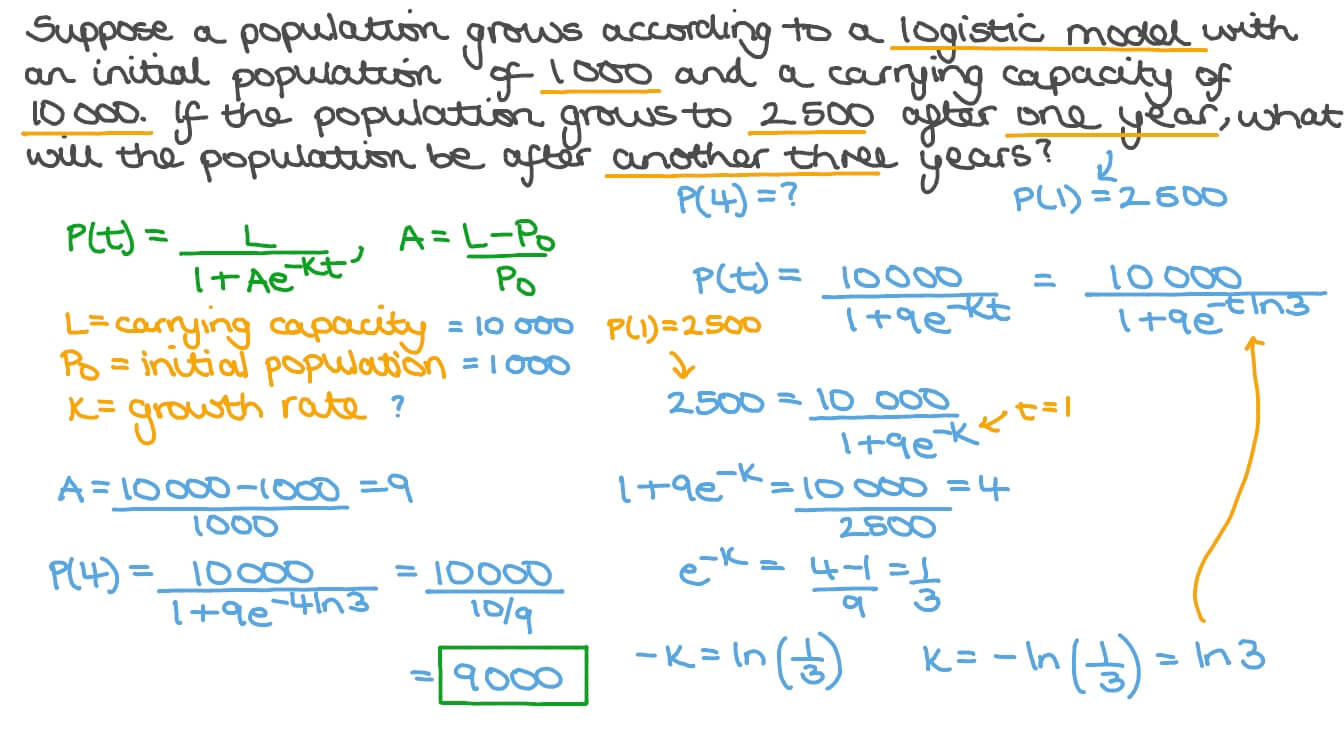 Suppose a population grows according to a logistic model with
an initial population of 1000 and a carrying capacity of
10 000. If the population grows to 2500 after one year, what
will the population be after another three years?
P(4) = ?
P(1) = 2500
P(t) = L / (1 + Ae^(-kt)), A = (L - P₀) / P₀
L = carrying capacity = 10 000
P₀ = initial population = 1000
K = growth rate ?
A = (10 000 - 1000) / 1000 = 9
P(4) = 10000 / (1 + 9e^(-4ln3)) = 10000 / (10/9)
= 9000
P(t) = 10000 / (1 + 9e^(-kt)) = 10 000 / (1 + 9e^(-t ln 3))
P(1) = 2500
2500 = 10 000 / (1 + 9e^(-k)) t = 1
1 + 9e^(-k) = 10 000 / 2500 = 4
e^(-k) = (4 - 1) / 9 = 1/3
-k = ln(1/3) k = -ln(1/3) = ln 3